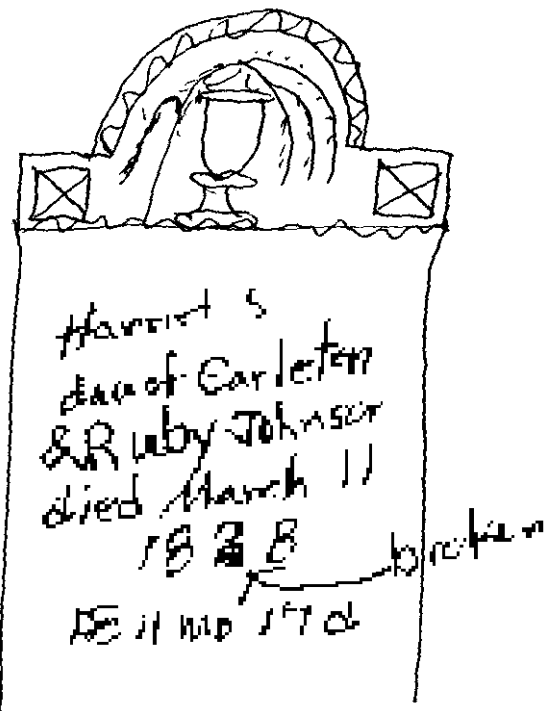 Harriet S
dau of Carleton
& Ruby Johnson
died March 11
1828
broken
AE 11 mo 17 d